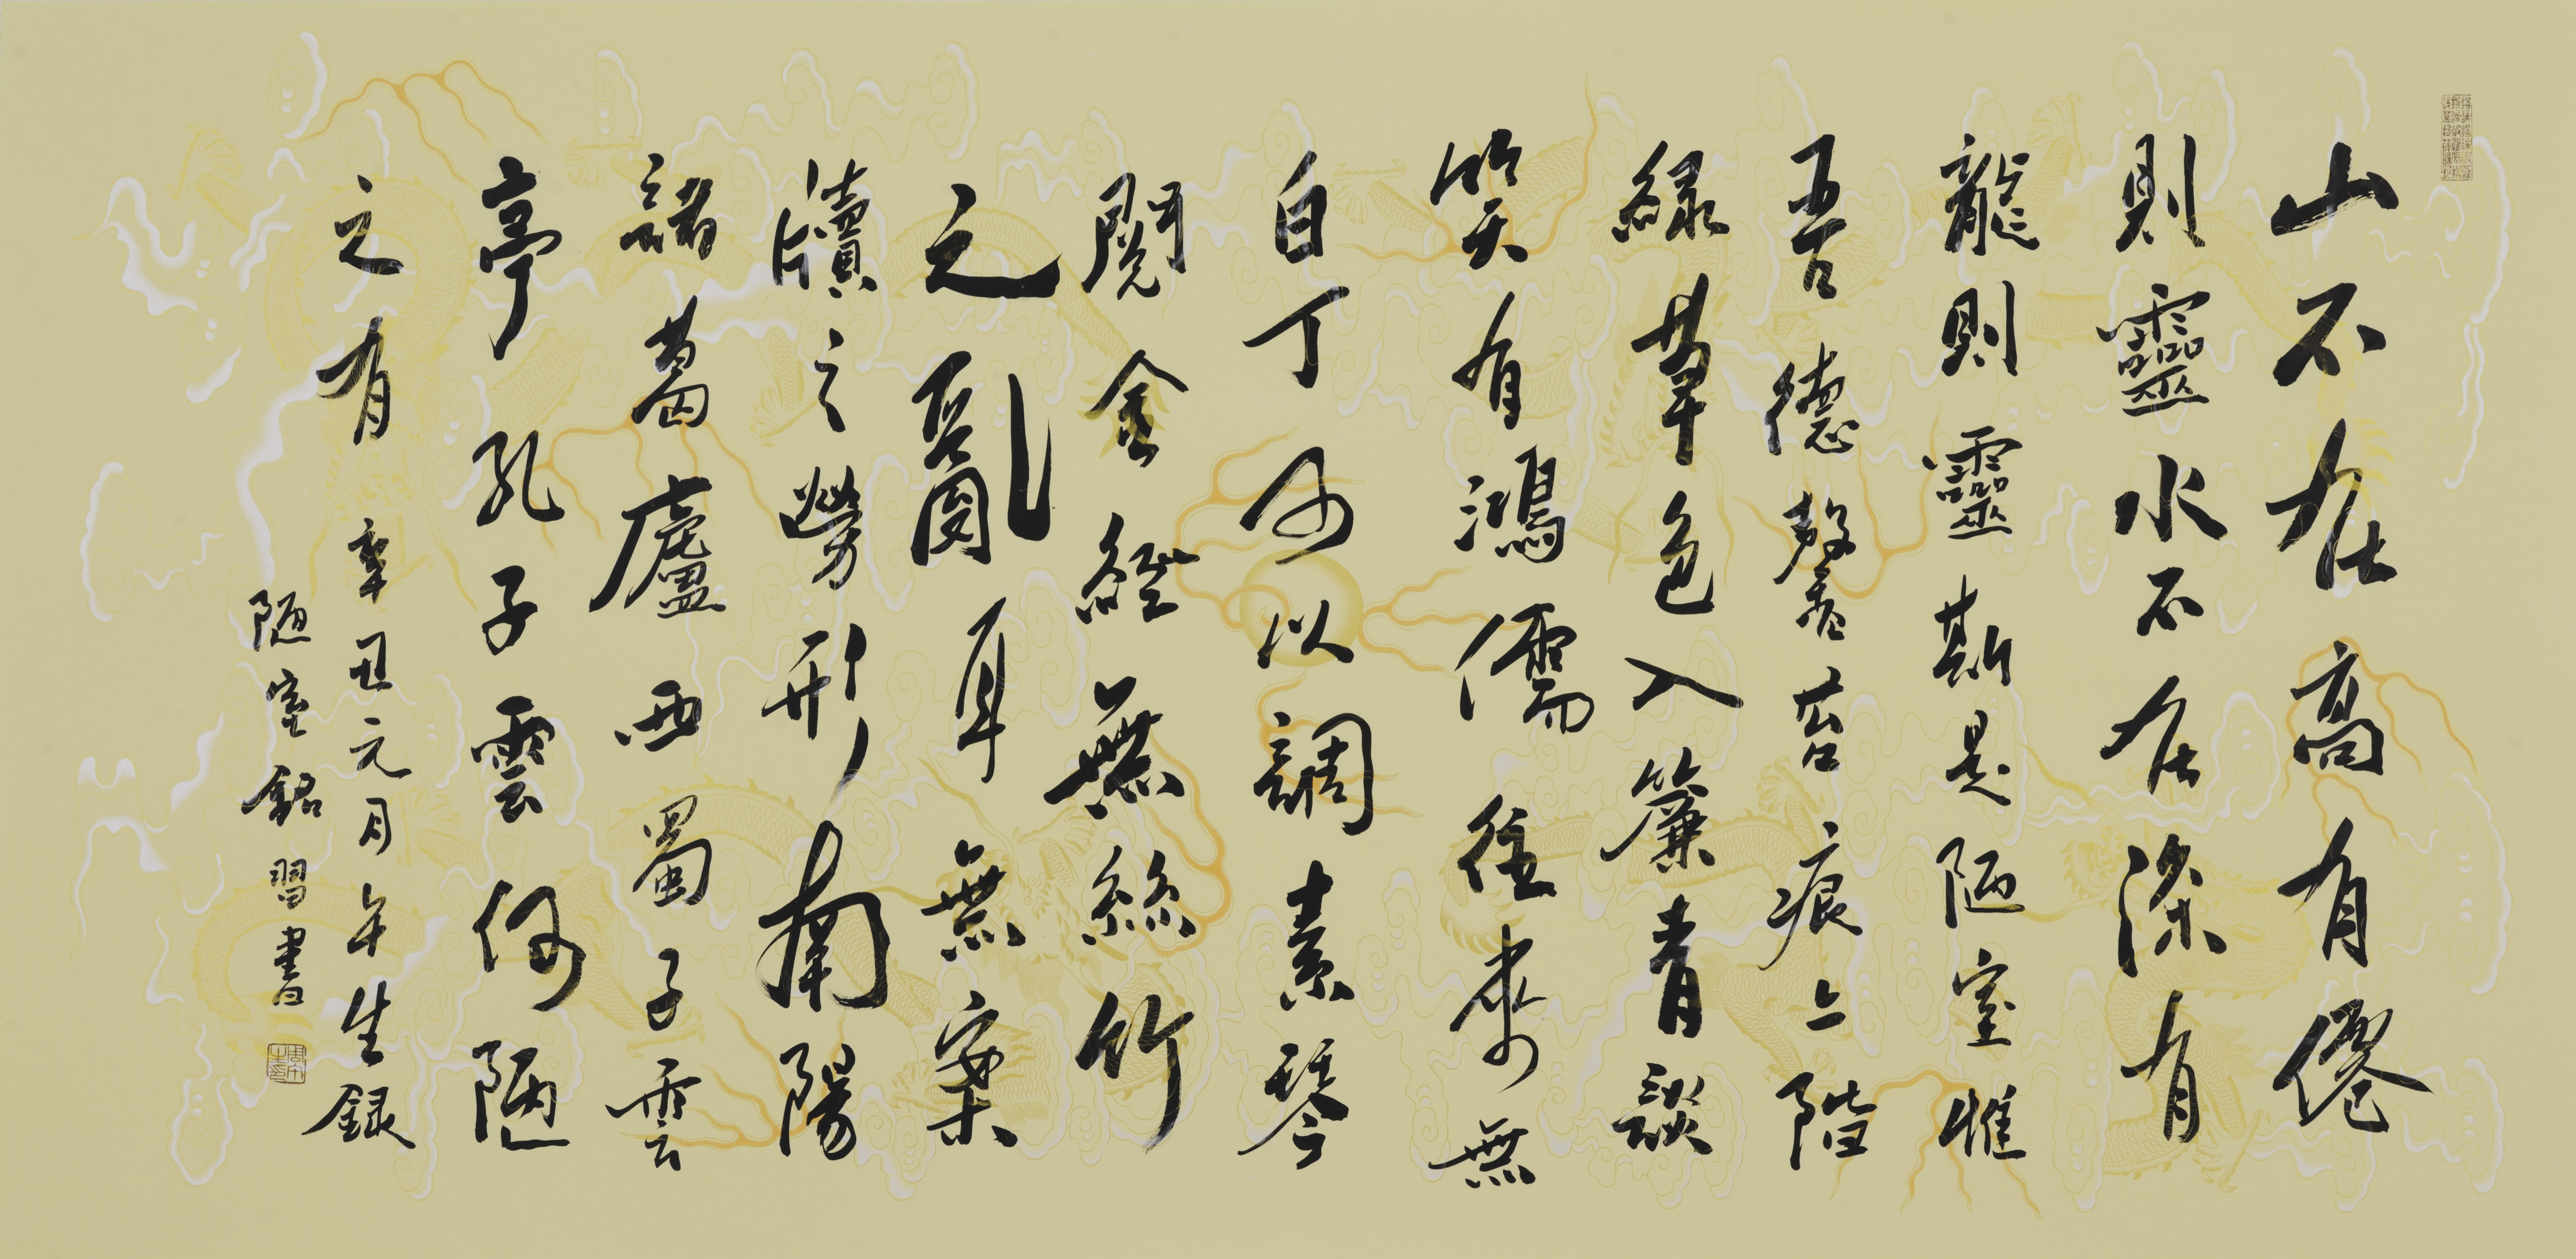 山不在高有僊
則靈水不在深有
龍則靈斯是陋室惟
吾德馨苔痕上階
綠草色入簾青談
笑有鴻儒往來無
白丁可以調素琴
閱金經無絲竹
之亂耳無案
牘之勞形南陽
諸葛廬西蜀子雲
亭孔子雲何陋
之有 辛丑元月年生録
陋室銘習書